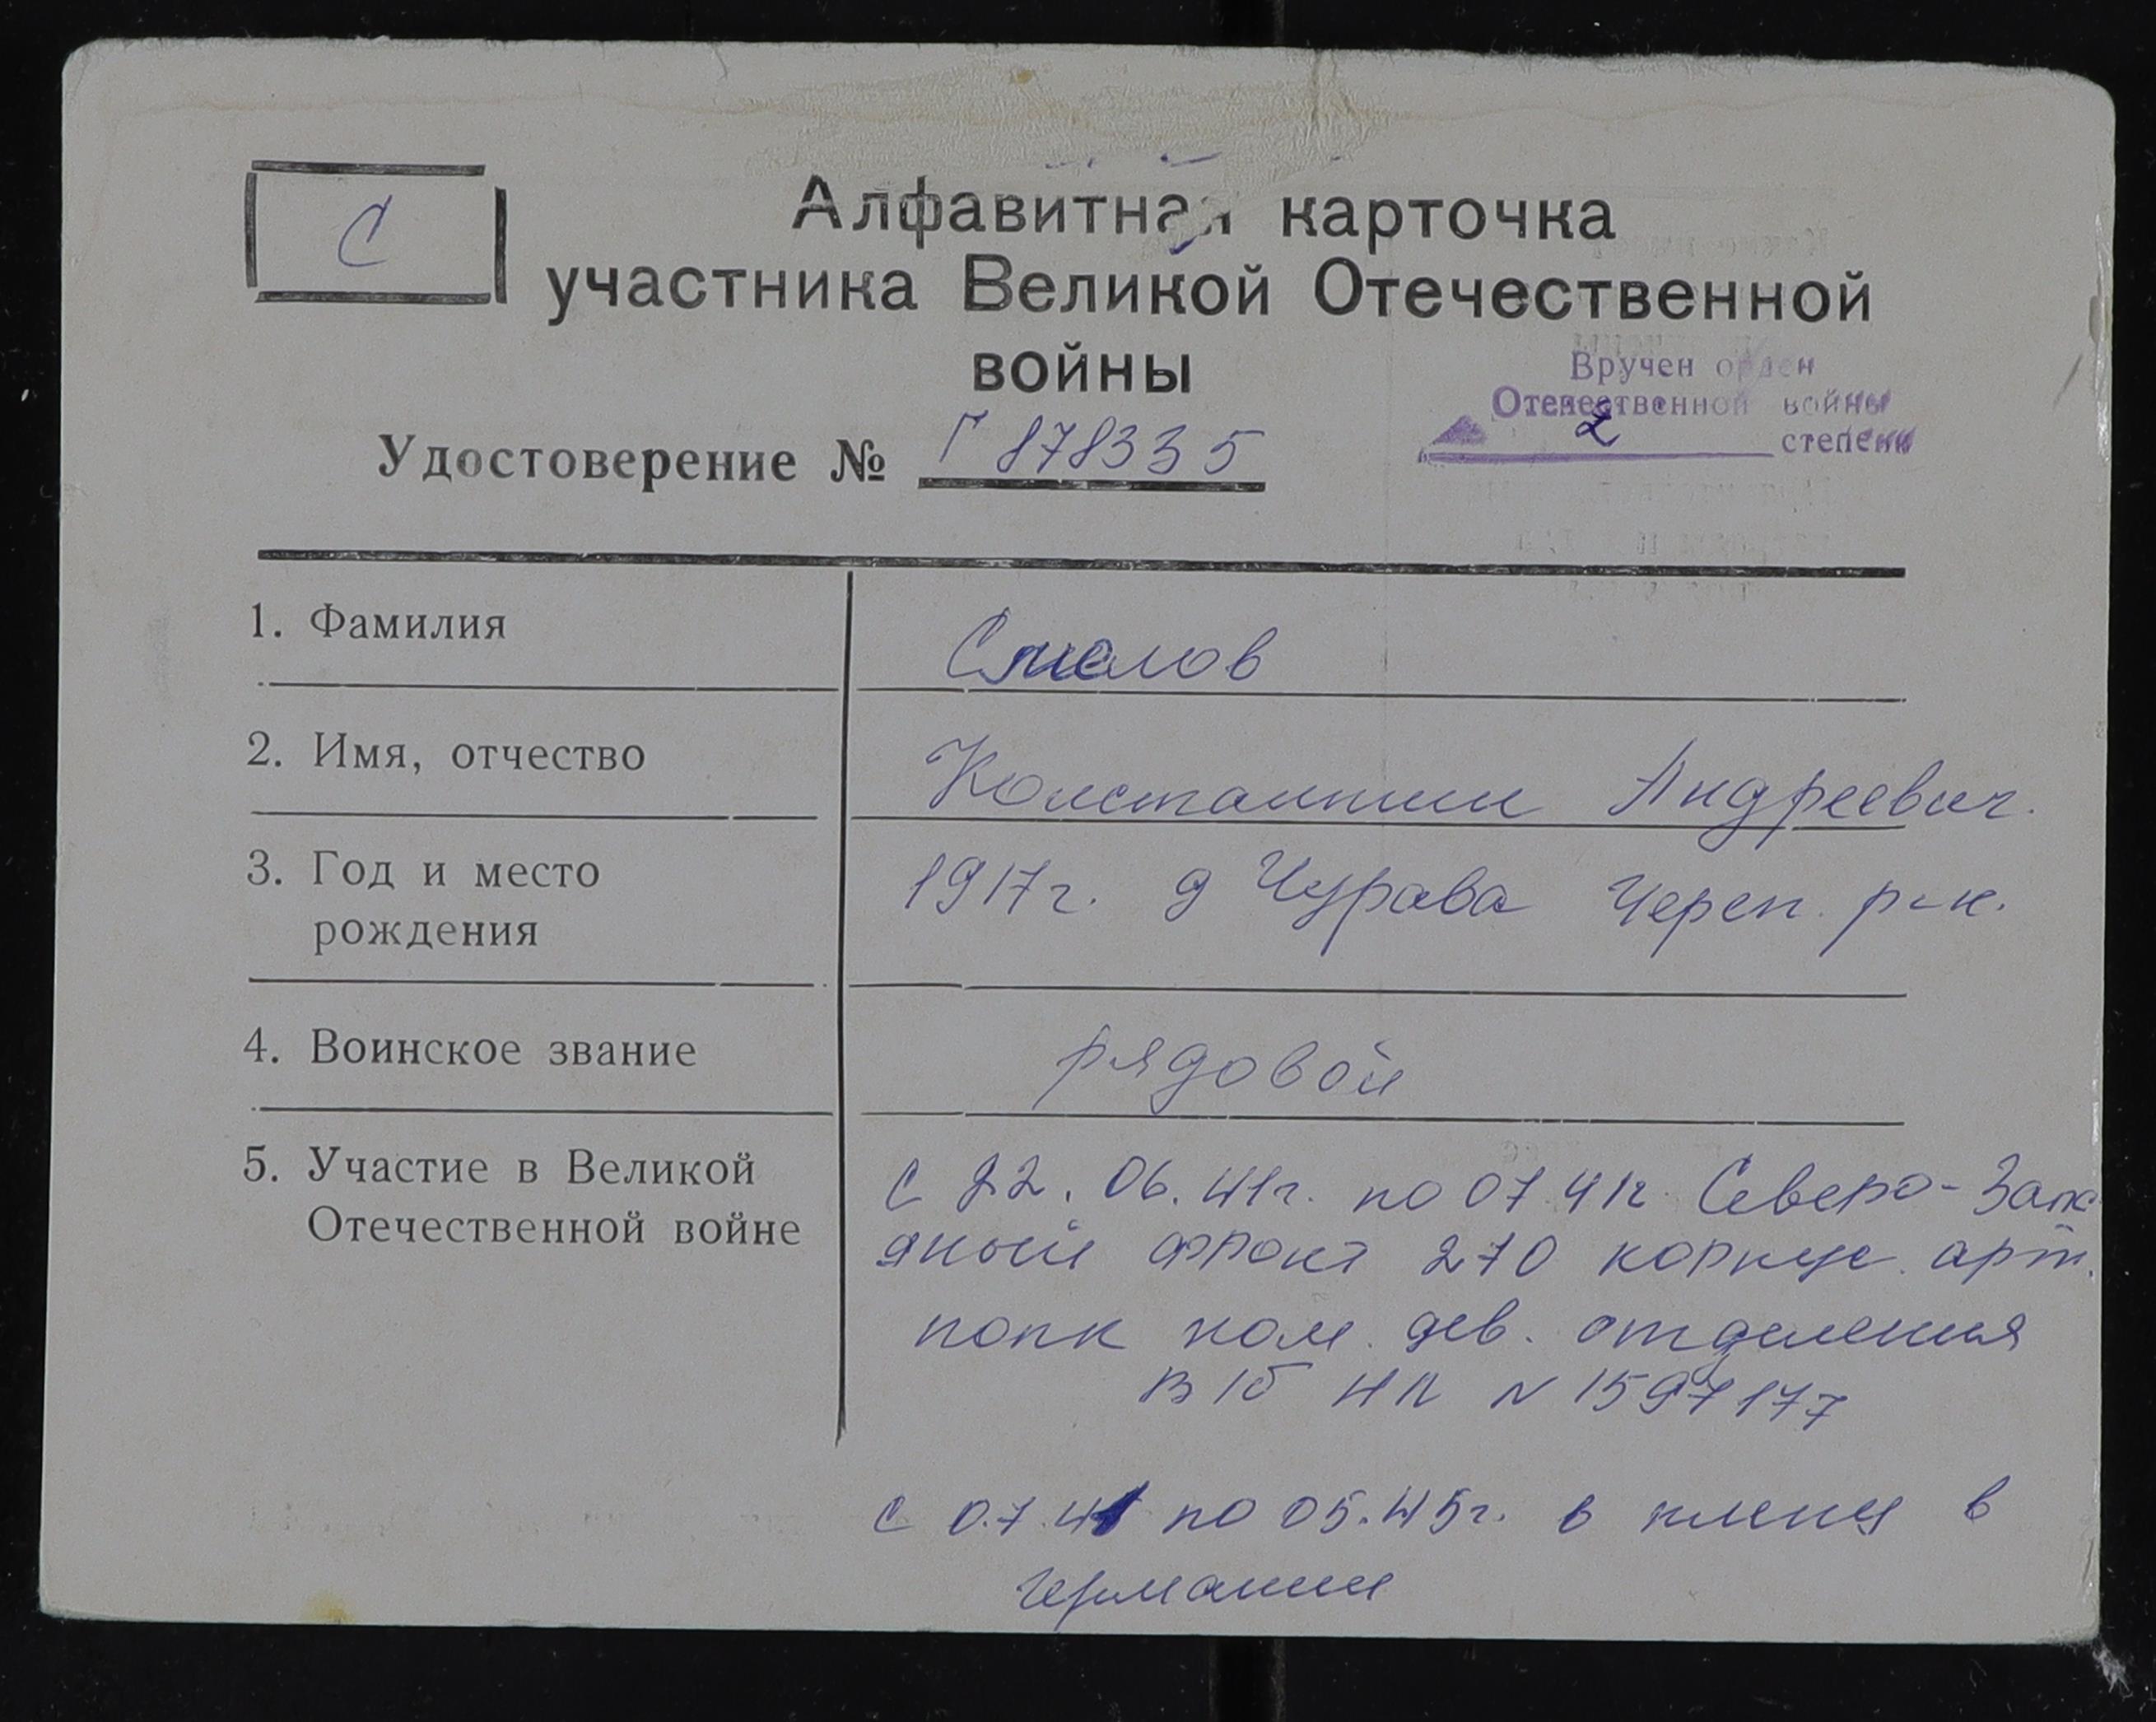 С
Алфавитная карточка
участника Великой Отечественной
войны
Вручен орден
Отечественной войны
2 степени
Удостоверение № Г 878335
1. Фамилия
Смелов
2. Имя, отчество
Константин Андреевич.
3. Год и место
рождения
1917г. д Чурава Череп. р-н.
4. Воинское звание
рядовой
5. Участие в Великой
Отечественной войне
С 22. 06. 41г. по 07.41г. Северо-Запа
дный фронт 270 корпус. арт.
полк ком. отделения
ВБ НП № 1597177
с 07.41 по 05.45г. в плену в
Германии